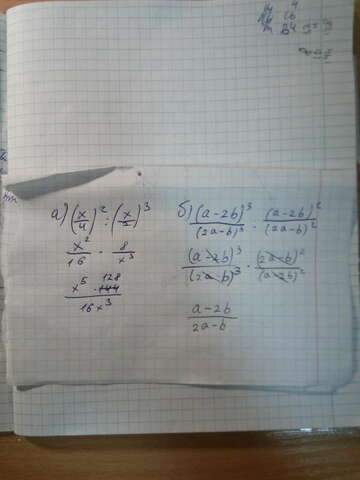 а) (x/4)² : (x/2)³
x²/16 · 8/x³
x⁵ · 128/16x³
б) (a-2b)³/(2a-b)³ · (a-2b)²/(2a-b)²
(a-2b)³/(2a-b)³ · (2a-b)²/(a-2b)²
a-2b/2a-b